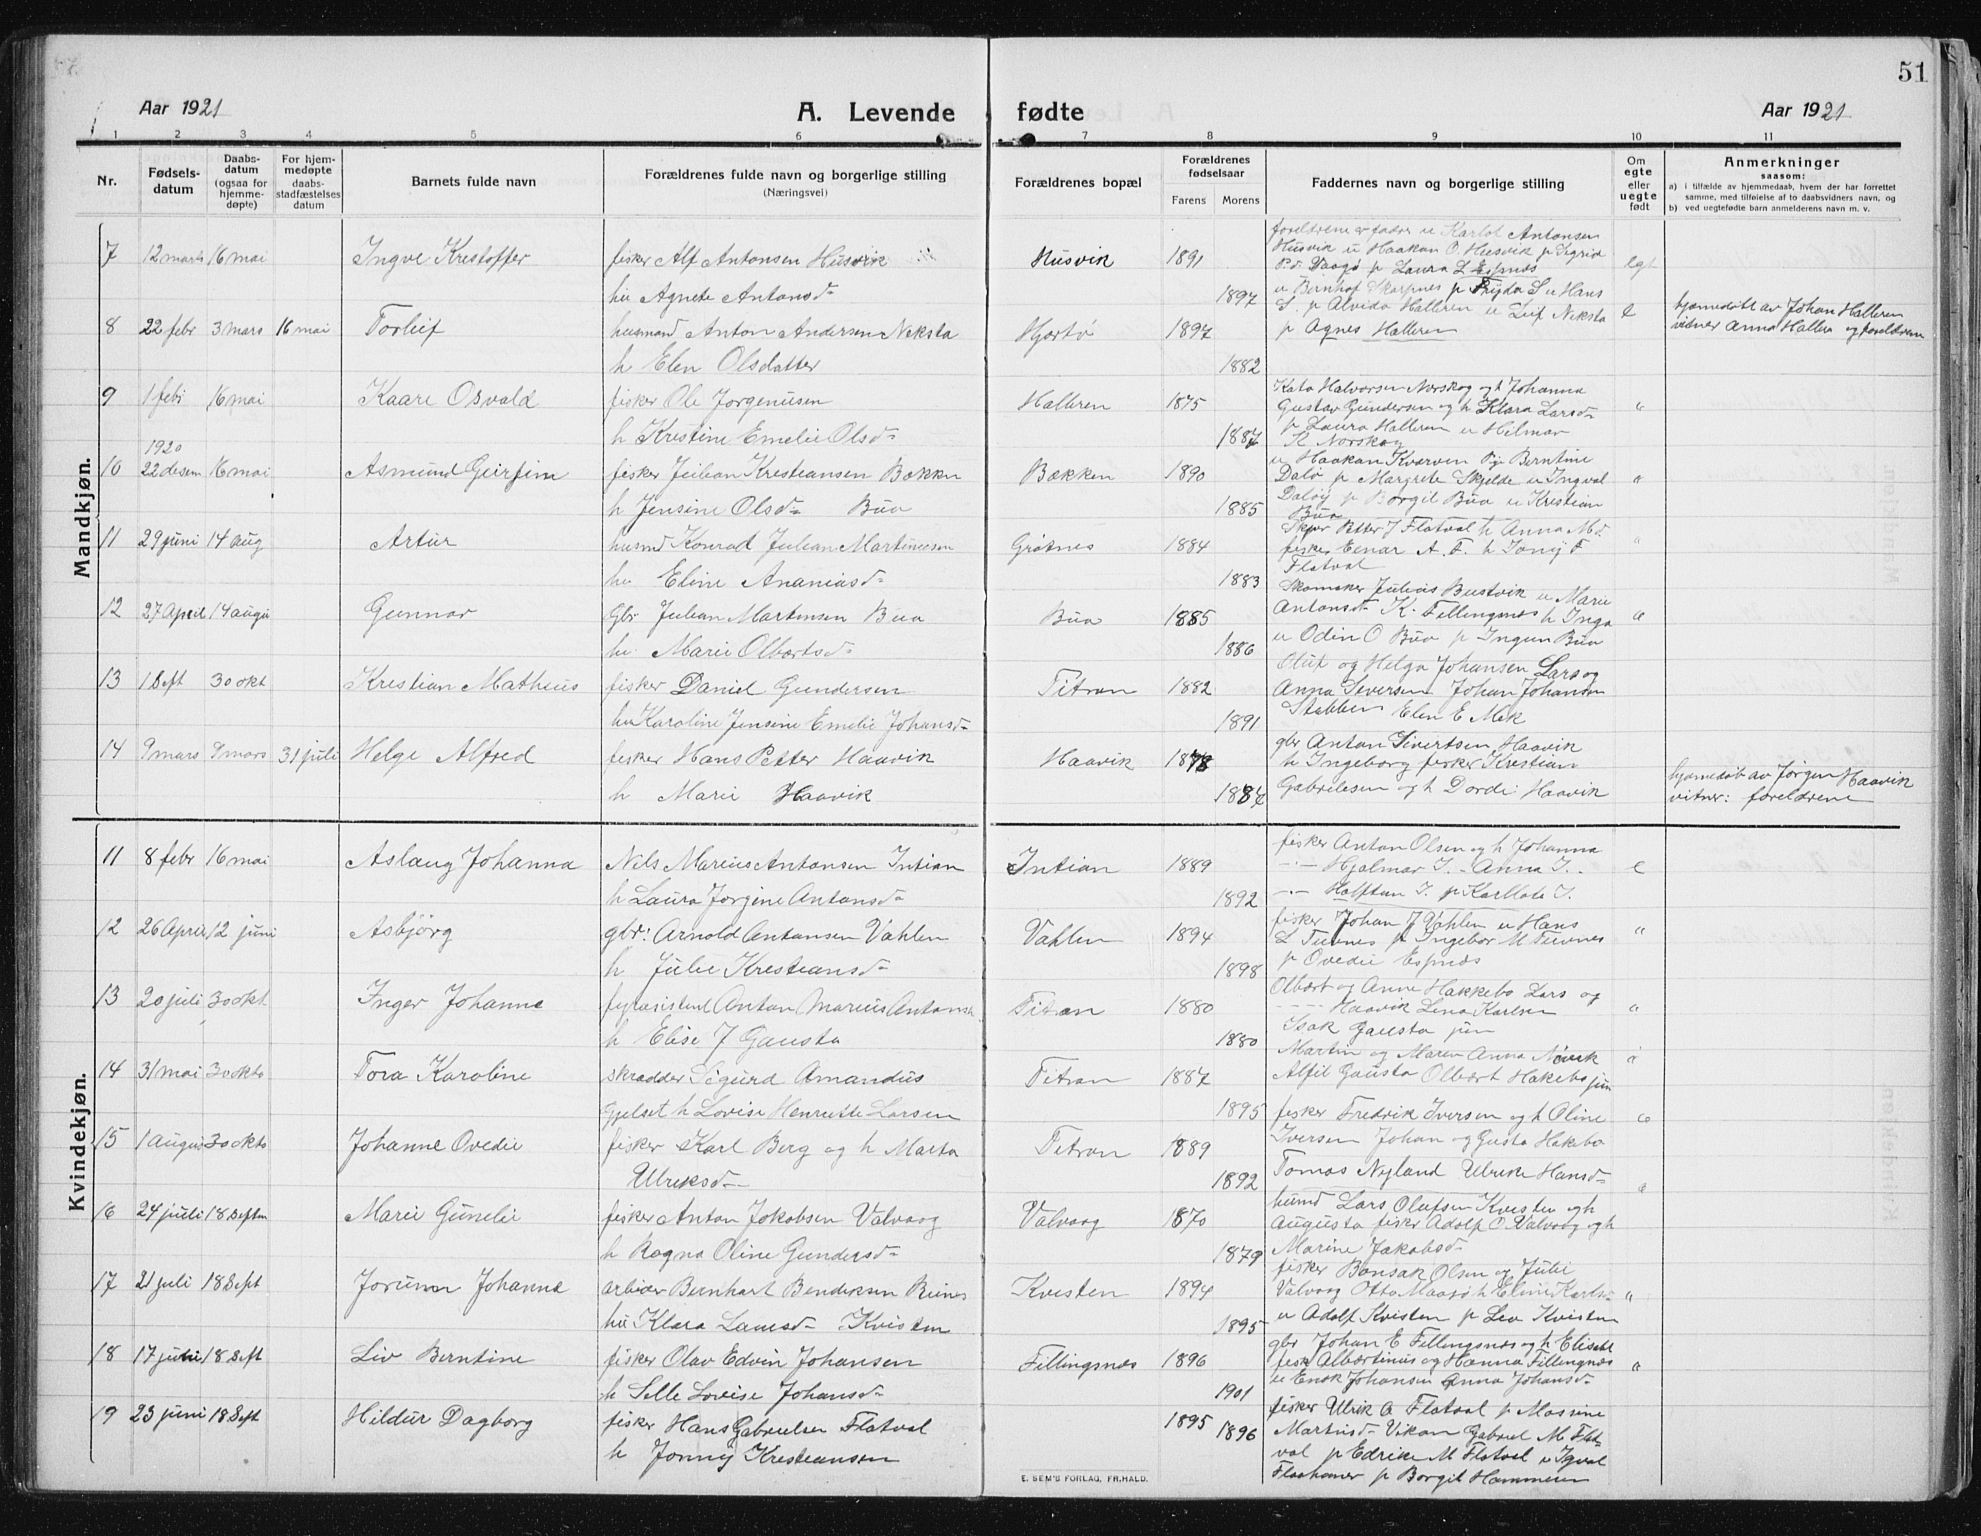 51
Aar 1921
A. Levende fødte
Aar 1921
1 2 3 4 5 6 7 8 9 10 11
Nr.
Fødsels-
datum
Daabs-
datum
(ogsaa for
hjemme-
døpte)
For hjem-
medøpte
daabs-
stadfæstelses
datum
Barnets fulde navn
Forældrenes fulde navn og borgerlige stilling
(Næringsvei)
Forældrenes bopæl
Forældrenes
fødselsaar
Farens Morens
Faddernes navn og borgerlige stilling
Om
egte
eller
uegte
født
Anmerkninger
saasom:
a) i tilfælde av hjemmedaab, hvem der har forrettet
samme, med tilføielse af to daabsvidners navn, og
b) ved uegtefødte barn anmelderens navn m. v.
Mandkjøn.
7 12 marts 16 mai Ingve Krestoffer fisker Alf Antonsen Husvik Husvik 1891
hu Agnete Antonsd. 1897
foreldrene er fadre u Karlot Antonsen
Husvik u Haakon O. Husvik p Sigrid
8 22 febr 3 mars 16 mai Torleif husmand Anton Andersen Neksta Hjertø 1897
h Elen Olsdatter 1882
S. p Alvida Halleren u Leif Neksta
p Agnes Halleren
hjemedøbt av Johan Halleren
vidner Anna Halleren og foreldrene
9 1 febr 16 mai Kaare Osvald fisker Ole Jorgenusen Halleren 1875
h Kristine Emelie Olsd. 1887
Halvorsen Norskog og h Johanna
Gustav Gundersen og h Klara Larsd.
p Laura Halleren u Hilmar
K Norskog
10 1920
22 desem 16 mai Asmund Geirfinn fisker Julian Krestiansen Bækken Bækken 1890
h Jensine Olsd. Bua 1885
u Haakan Kværven Pige Berntine
Dalø p Margrete Skjelde u Ingval
Daløy p Borgil Bua u Kristian
Bua
11 29 juni 14 aug Artur husmd Konrad Julian Martinusen Grøtnes 1884
hu Eline Ananiasd. 1883
Petter J Flatval h Anna M.d.
fisker Einar A. F. h Jony F
Flatval
12 27 April 14 augu Gunnar Gbr Julian Martinsen Bua Bua 1885
hu. Marie Olbertsd. 1886
Skomaker Julius Bustvik u Marie
Antonsd. K. Fillingsnes h Inga
u Odin O Bua p Ingun Bua
13 1 Sept 30 okt Krestian Matheus fisker Daniel Gundersen Titran 1882
hu Karoline Jensine Emelie Johansd. 1891
Oluf og Helga Johansen Lars og
Anna Seversen Johan Johansen
Stabben Elen E Mek
14 9 mars 9 mars 31 juli Helge Alfred fisker Hans Petter Haavik Haavik 1878
h Marie Haavik 1884
gbr Anton Sivertsen Haavik
h Ingeborg fisker Krestian
Gabrielesen og h Dorde: Haavik
hjemedøb av Jørgen Haavik
vitner: foreldrene
Kvindekjøn.
11 8 febr 16 mai Aslaug Johanna Nils Marius Antonsen Intian Intian 1889
h Laura Jorgine Antonsd. 1892
fisker Anton Olsen og h Johanna
Hjalmar I. Anna I.
Halftan I. p Karllota I.
12 26 April 12 juni Asbjörg gbr: Arnold Antonsen Vahlen Vahlen 1894
h Julie Krestiansd. 1898
fisker Johan J Vahlen u Hans
L Tuvnes p Ingebor M Tuvnes
p Ovedie Espnes
13 20 juli 30 okt Inger Johanne fyrasistent Anton Marius Antonsen Titran 1880
h Elise J Gausta 1880
Olbert og Anne Hakkebo Lars og
Haavik Lena Karlsen
Isak Gausta jun
14 31 mai 30 okto Tora Karoline skrædder Sigurd Amandus Titran 1887
Gjelset h Lovise Henriette Larsen 1895
Martin og Maren Anna
Alfil Gausta Olbert Hakebo jun
fisker Fredrik Iversen og h Oline
15 1 augus 30 okto Johanne Ovedie fisker Karl Berg og h Marta Titran 1889
Ulriksd. 1892
Iversen Johan og Gusta Hakebo
Tomas Nyland Ulrik Hansd.
16 24 juli 18 Septm Marie Gunelie fisker Anton Jokobsen Valvaag Valvaag 1870
h Ragna Oline Gundersd. 1879
husmd Lars Olufsen Kvisten og h
Augusta fisker Adolf O Valvaag og h
Marine Jakobsd.
17 21 juli 18 Sept Jorunn Johanne arbeider Bernhart Bendiksen Reines Kvesten 1894
hu Klara Larsd. Kvisten 1895
fisker Bonsak Olsen og Julie
Valvaag Otto Maasø h Eline Karls.
u Adolf Kvisten p Lea Kvisten
18 17 juli 18 Sept Liv Berntine fisker Olav Edvin Johansen Fillingsnæs 1896
h Selle Lovise Johansd. 1901
gbr Johan E Fillingsnæs og h Elisabt
fisk Albertinius og Hanna Fillingnæs
u Enok Johansen Anna Johansd.
19 23 juni 18 Sept Hildur Dagborg fisker Hans Gabrielsen Flatval 1895
h Jonny Kresteansen 1896
fisker Ulrik A Flatval p Massine
Martinsd. Vikan Gabriel M Flat-
val p Edrikke M Flatval u Igval
p Borgit Hammeren
E. SEM'S FORLAG, FR.HALD.